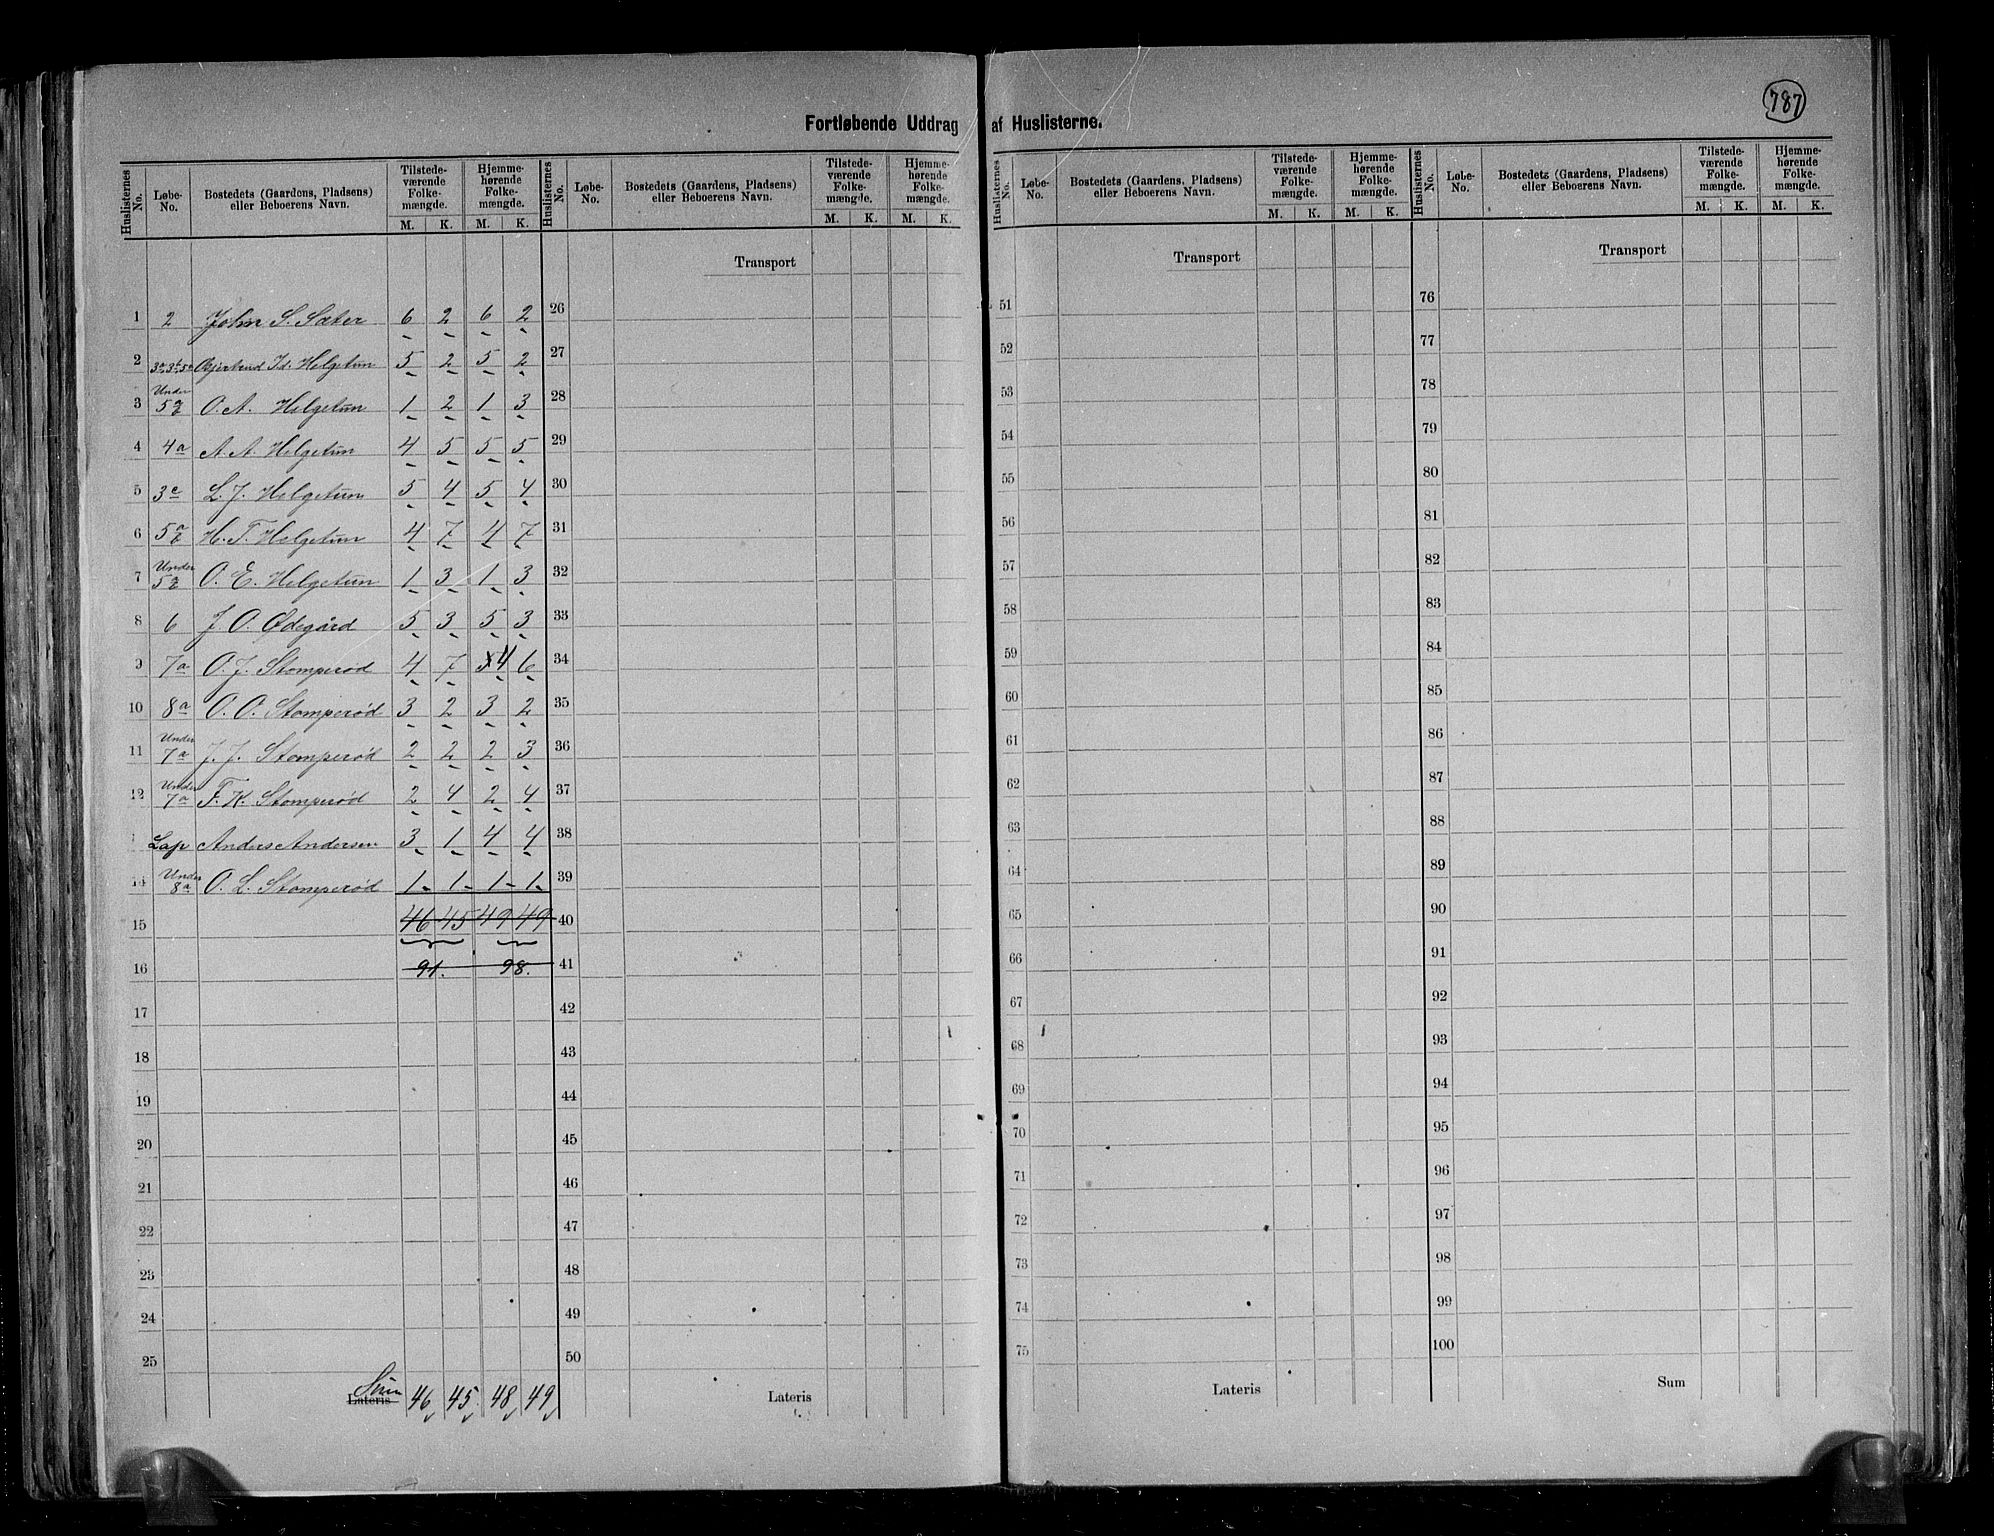 787
Fortløbende Uddrag af Huslisterne.
Huslisternes No. Løbe-No. Bostedets (Gaardens, Pladsens) eller Beboerens Navn. Tilstede-værende Folke-mængde. Hjemme-hørende Folke-mængde. Huslisternes No. Løbe-No. Bostedets (Gaardens, Pladsens) eller Beboerens Navn. Tilstede-værende Folke-mængde. Hjemme-hørende Folke-mængde. Huslisternes No. Løbe-No. Bostedets (Gaardens, Pladsens) eller Beboerens Navn. Tilstede-værende Folke-mængde. Hjemme-hørende Folke-mængde. Huslisternes No. Løbe-No. Bostedets (Gaardens, Pladsens) eller Beboerens Navn. Tilstede-værende Folke-mængde. Hjemme-hørende Folke-mængde.
M. K. M. K. M. K. M. K. M. K. M. K. M. K. M. K.
Transport Transport Transport
1 2 John S. Sæter 6 2 6 2 26 51 76
2 3a, 3b, 5 Gjertrud Jd. Helgetun 5 2 5 2 27 52 77
3 Under 5a O. A. Helgetun 1 2 1 3 28 53 78
4 4a A. A. Helgetun 4 5 5 5 29 54 79
5 3c L. J. Helgetun 5 4 5 4 30 55 80
6 5a H. T. Helgetun 4 7 4 7 31 56 81
7 Under 5a O. E. Helgetun 1 3 1 3 32 57 82
8 6 J. O. Ødegård 5 3 5 3 33 58 83
9 7a O. J. Stomperød 4 7 4 6 34 59 84
10 8a O. O. Stomperød 3 2 3 2 35 60 85
11 Under 7a J. J. Stomperød 2 2 2 3 36 61 86
12 Under 7a F. K. Stomperød 2 4 2 4 37 62 87
Lap Anders Andersen 3 1 4 4 38 63 88
14 Under 8a O. L. Stomperød 1 1 1 1 39 64 89
15 46 45 49 49 40 65 90
16 91. 98. 41 66 91
17 42 67 92
18 43 68 93
19 44 69 94
20 45 70 95
21 46 71 96
22 47 72 97
23 48 73 98
24 49 74 99
25 50 75 100
Sum Lateris 46 45 48 49 Lateris Lateris Sum